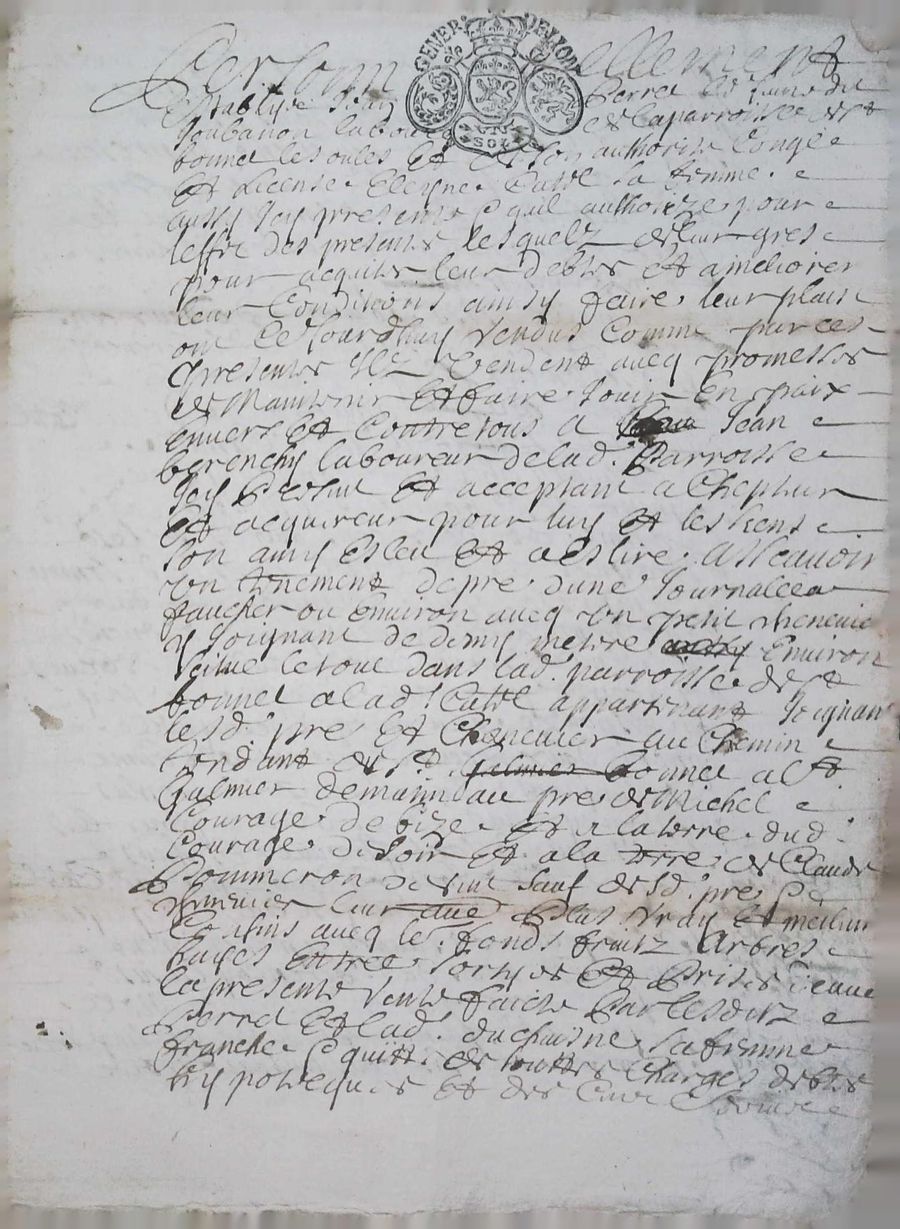 GENER DE LYON
UN SOLS
Personnellement
Establys Jean Perret dit jeune du
Joubanon laboureur de la parroisse de St
bonnet les oules Et de son authorité Congé
Et License Cathe sa femme
aussy Icy presente quil authorize pour
leffet des presentes lesquelz de leur gres
pour acquiter leur debtes Et ameliorer
leur Conditions ainsy faire leur plaise
ont Ce Jourdhuy Vendus Comme par ces
presentes Ilz Vendent avecq promesses
de Maintenir Et faire Jouir En paix
Envers Et Contre tous A Jean
berenchy laboureur de lad. Parroisse
Icy Present Et acceptant achepteur
Et acquereur pour luy Et les siens
son amy Esleu Et a Eslire Assçavoir
Un tenement de pre dune Journallee a
faucher ou Environ avecq Un petit chenevie
y Joignant de demy metre Environ
scitue le tout dans lad. parroisse de St
bonnet a lad. Cathe appartenant Joignan
lesd. pre Et Chenevier au Chemin
Tendant de St. Galmier Bonnet a St
Galmier de matin au pre de Michel
Courage de bize Et a la terre dud.
Courage de soir Et a la terre de Claude
Pommeron de vent sauf desd. pre
chenevier leur Plus Vray Et meilleur
Confins avecq les fonds fruitz Arbres
hayes Entree sortyes Et Prises deaue
la presente Vente faicte Par lesditz
Perret Et lad. duchaisne sa femme
franche quitte de touttes Charges debtes
hypoteques et des